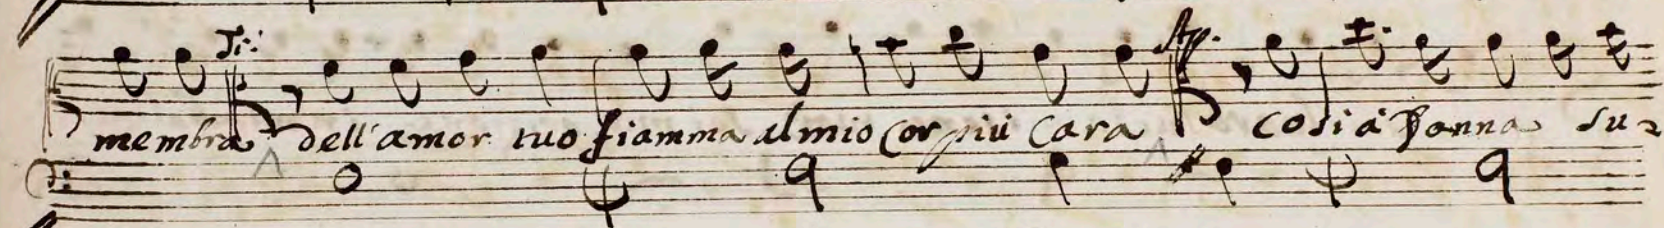 Ti: Ap.
membra dell'amor tuo fiamma al mio cor più cara cosi à Donna su-